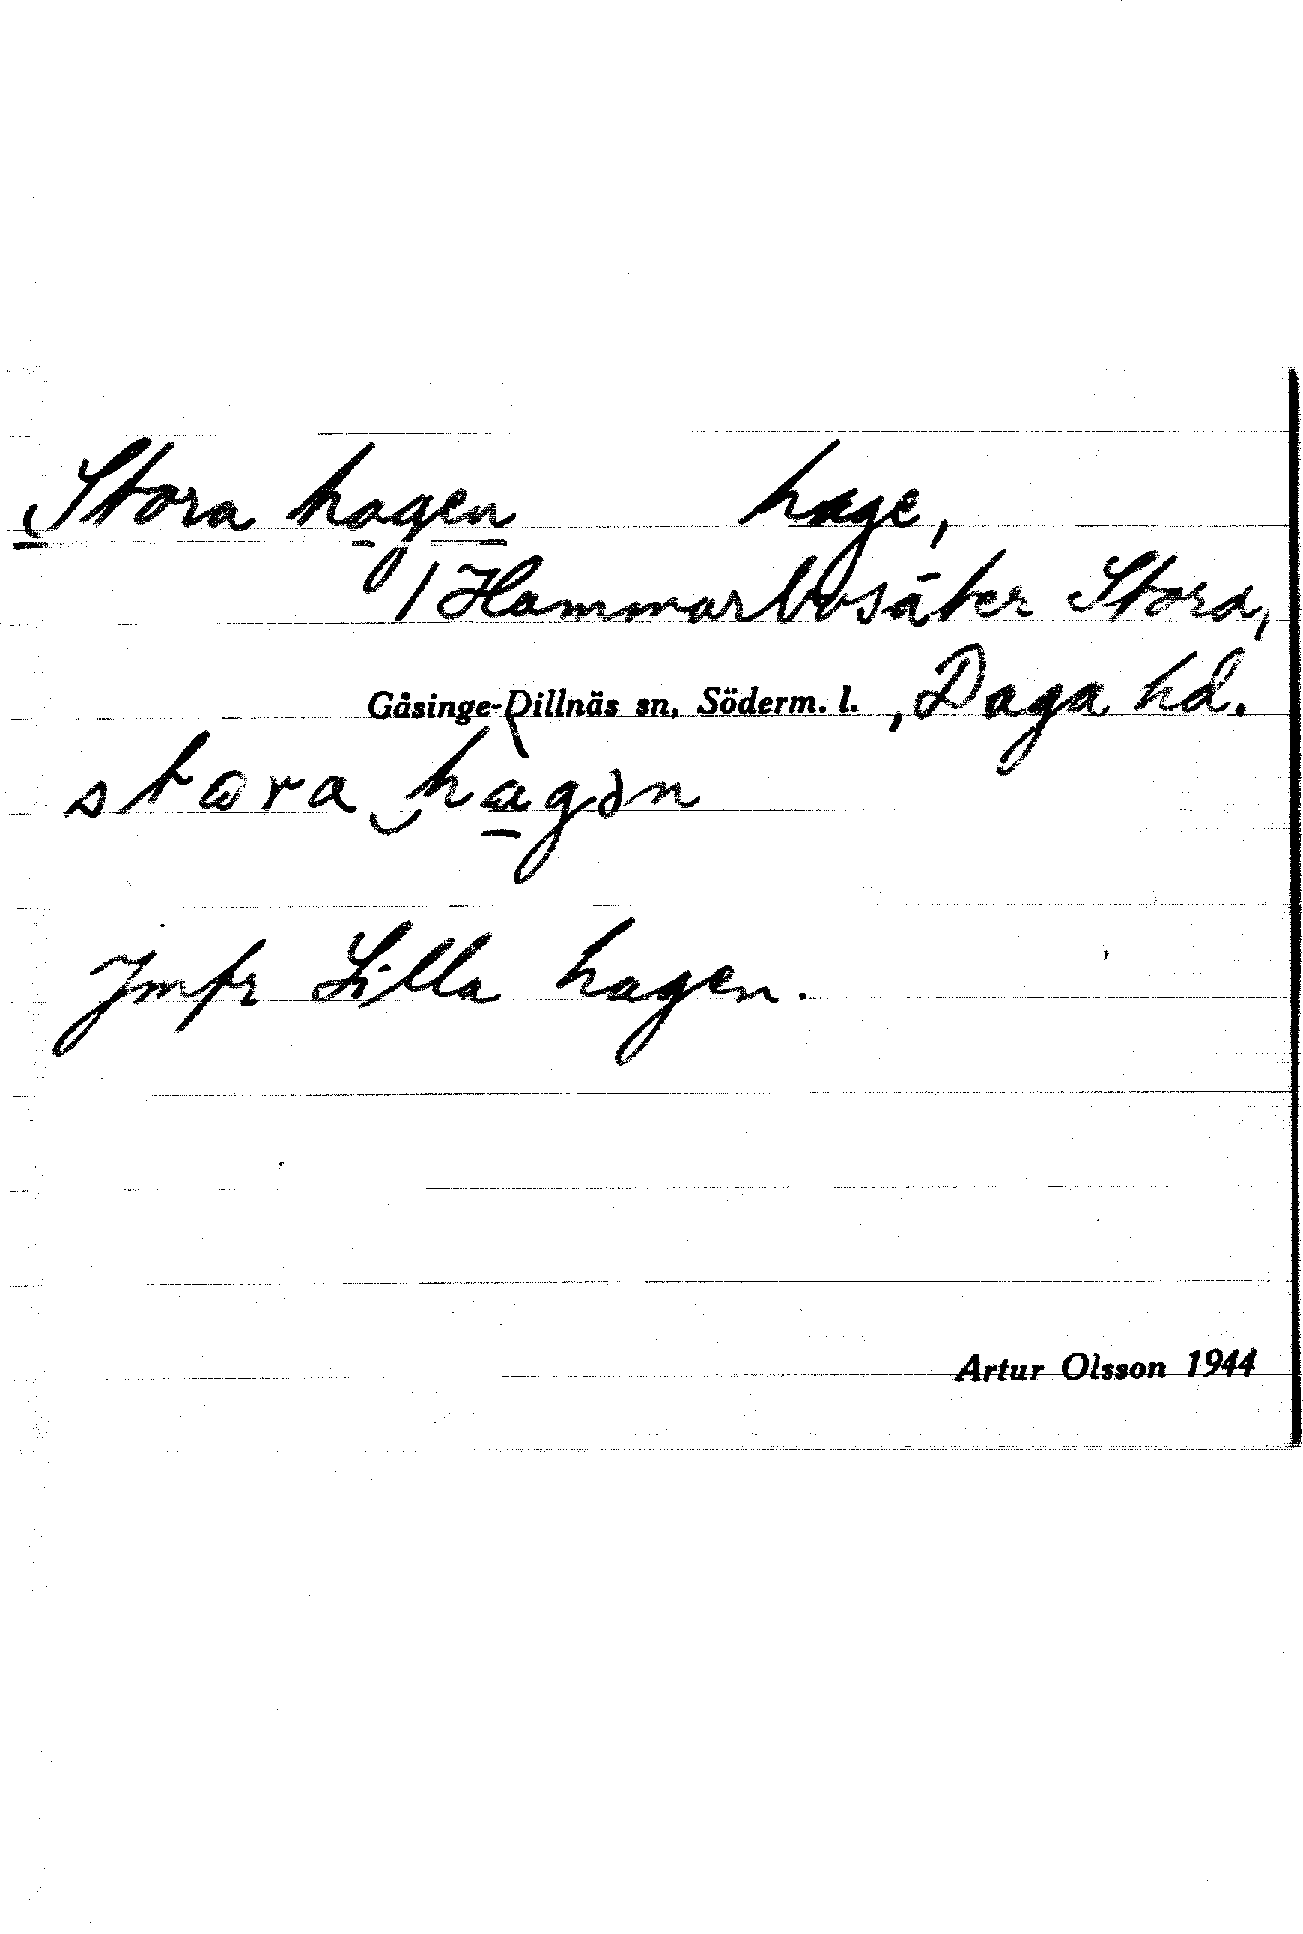 Stora hagen hage,
/ Hammarbosäter Stora,
Gåsinge-Dillnäs sn, Söderm. l. , Daga hd.
stωra ‿ hàgən
Jmfr Lilla hagen.
Artur Olsson 1944